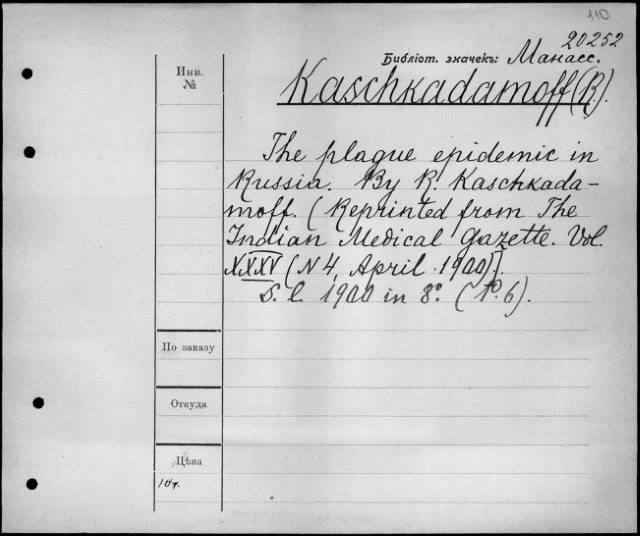 110
20252
Библіот. значекъ: Манасс.
Инв.
№
Kaschkadamoff (R.).
The plague epidemic in
Russia. By R. Kaschkada-
moff. (Reprinted from The
Indian Medical Gazette. Vol.
XXXV (N 4, April 1900)).
S. l. 1900 in 8º. (1º. 6).
По заказу
Откуда
Цѣна